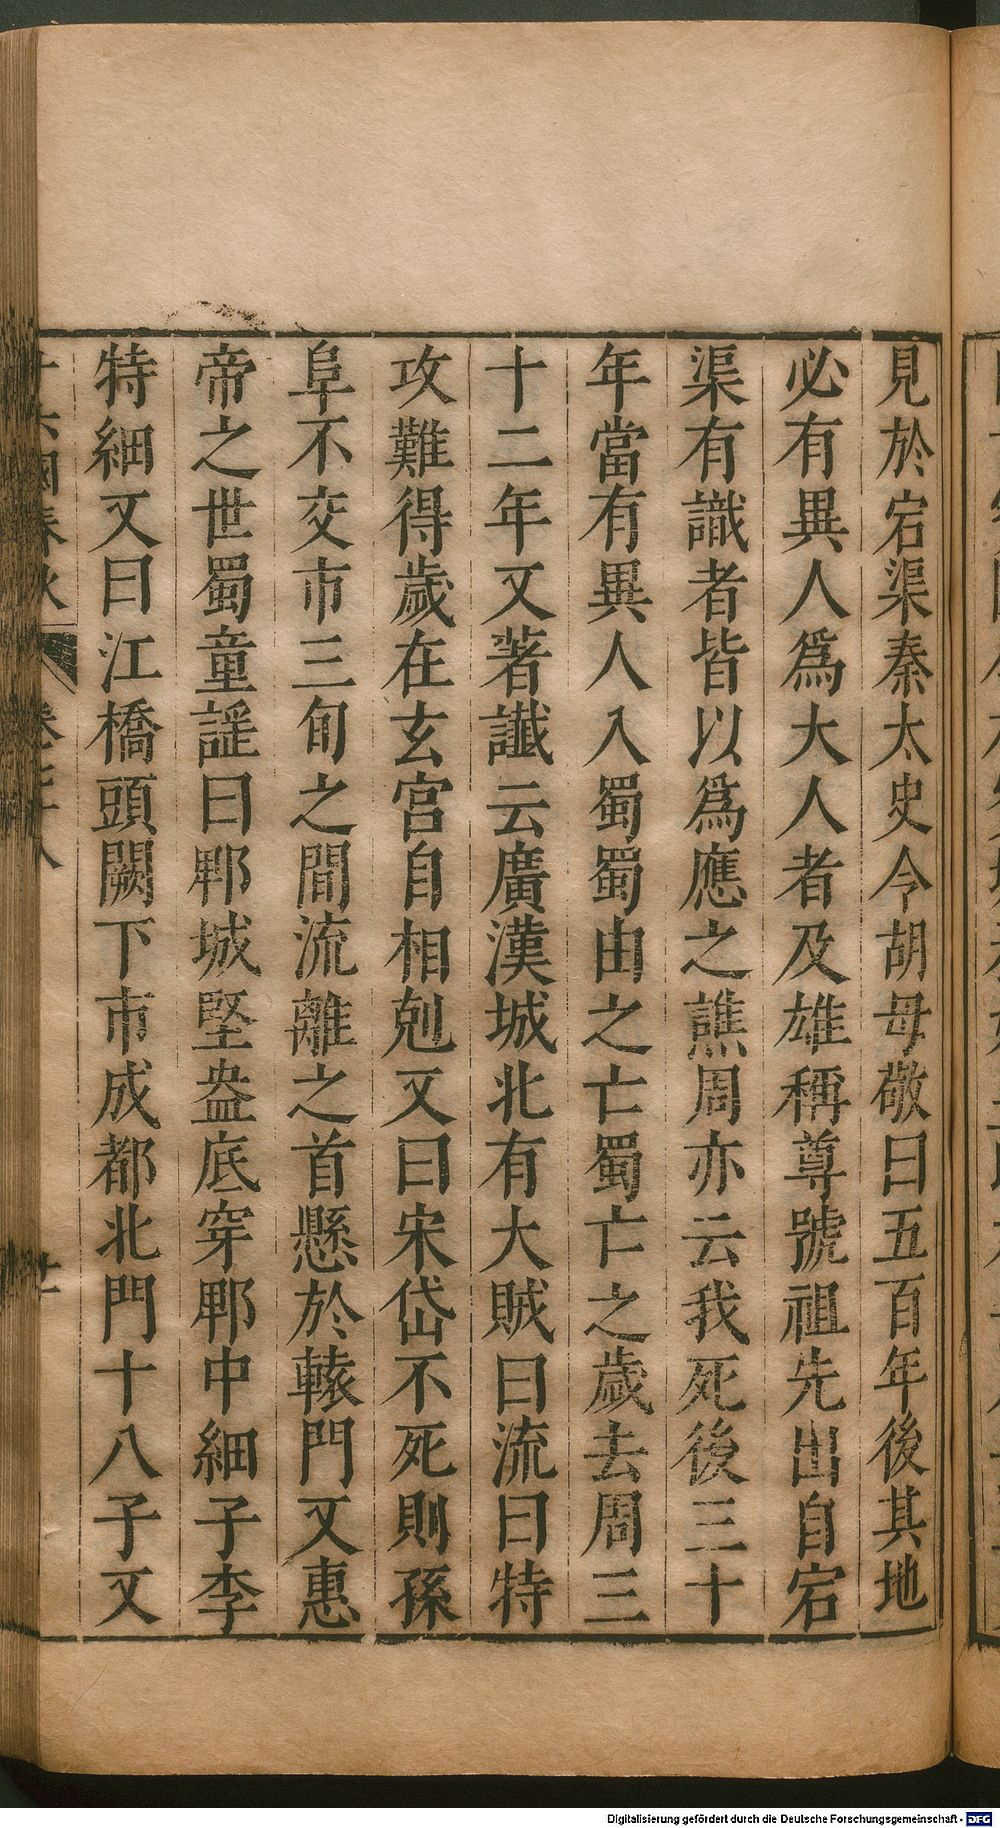 見於宕渠秦太史令胡母敬曰五百年後其地
必有異人爲大人者及雄稱尊號祖先出自宕
渠有識者皆以爲應之譙周亦云我死後三十
年當有異人入蜀蜀由之亡蜀亡之歲去周三
十二年又著讖云廣漢城北有大賊曰流曰特
攻難得歲在玄宮自相剋又曰宋岱不死則孫
阜不交市三旬之間流離之首懸於轅門又惠
帝之世蜀童謡曰郫城堅盎底穿郫中細子李
特細又曰江橋頭闕下市成都北門十八子又
十六國春秋 卷七十八 廿一
Digitalisierung gefördert durch die Deutsche Forschungsgemeinschaft - DFG